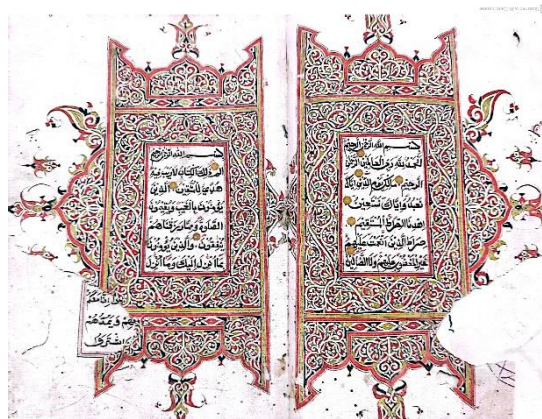 بسم الله الرحمن الرحيم
الحمد لله رب العالمين الرحمن
الرحيم ملك يوم الدين اياك
نعبد واياك نستعين
اهدنا الصراط المستقيم
صراط الذين انعمت عليهم
غير المغضوب عليهم ولا الضالين
بسم الله الرحمن الرحيم
الم ذلك الكتاب لا ريب فيه
هدى للمتقين الذين
يؤمنون بالغيب ويقيمون
الصلوة ومما رزقناهم
ينفقون والذين يؤمنون
بما أنزل اليك وما أنزل
ويمدهم